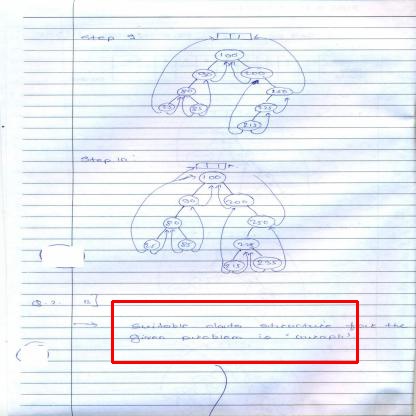 Step 9:
100
90 200
80 250
85
215
Step 10:
100
90 200
80 250
85
215 235
Q.2. B]
→ Suitable data structure for the
given problem is "Graph".